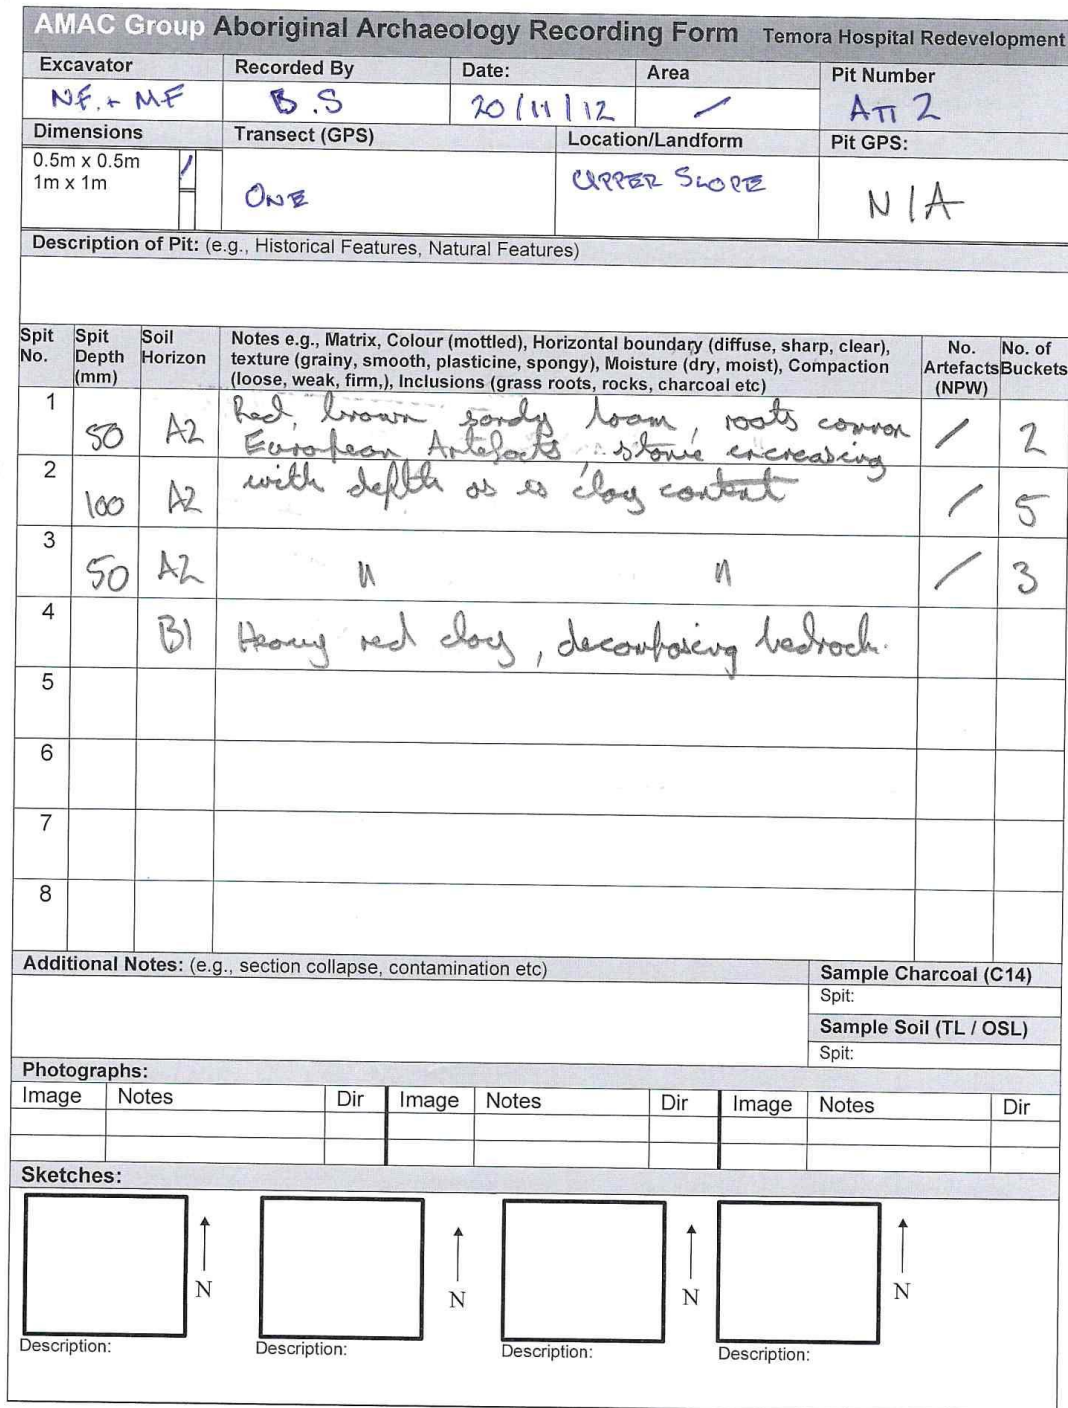 AMAC Group Aboriginal Archaeology Recording Form Temora Hospital Redevelopment
Excavator Recorded By Date: Area Pit Number
NF. + MF B.S 20/11/12 / ATT 2
Dimensions Transect (GPS) Location/Landform Pit GPS:
0.5m x 0.5m /
1m x 1m
ONE UPPER SLOPE N/A
Description of Pit: (e.g., Historical Features, Natural Features)
Spit No. Spit Depth (mm) Soil Horizon Notes e.g., Matrix, Colour (mottled), Horizontal boundary (diffuse, sharp, clear), texture (grainy, smooth, plasticine, spongy), Moisture (dry, moist), Compaction (loose, weak, firm,), Inclusions (grass roots, rocks, charcoal etc) No. Artefacts (NPW) No. of Buckets
1 50 A2 Red, brown sandy loam, roots common / 2
European Artefacts, stone increasing
2 100 A2 with depth as is clay content / 5
3 50 A2 " " / 3
4 B1 Heavy red clay, decomposing bedrock.
5
6
7
8
Additional Notes: (e.g., section collapse, contamination etc) Sample Charcoal (C14)
Spit:
Sample Soil (TL / OSL)
Spit:
Photographs:
Image Notes Dir Image Notes Dir Image Notes Dir
Sketches:
N N N N
Description: Description: Description: Description: